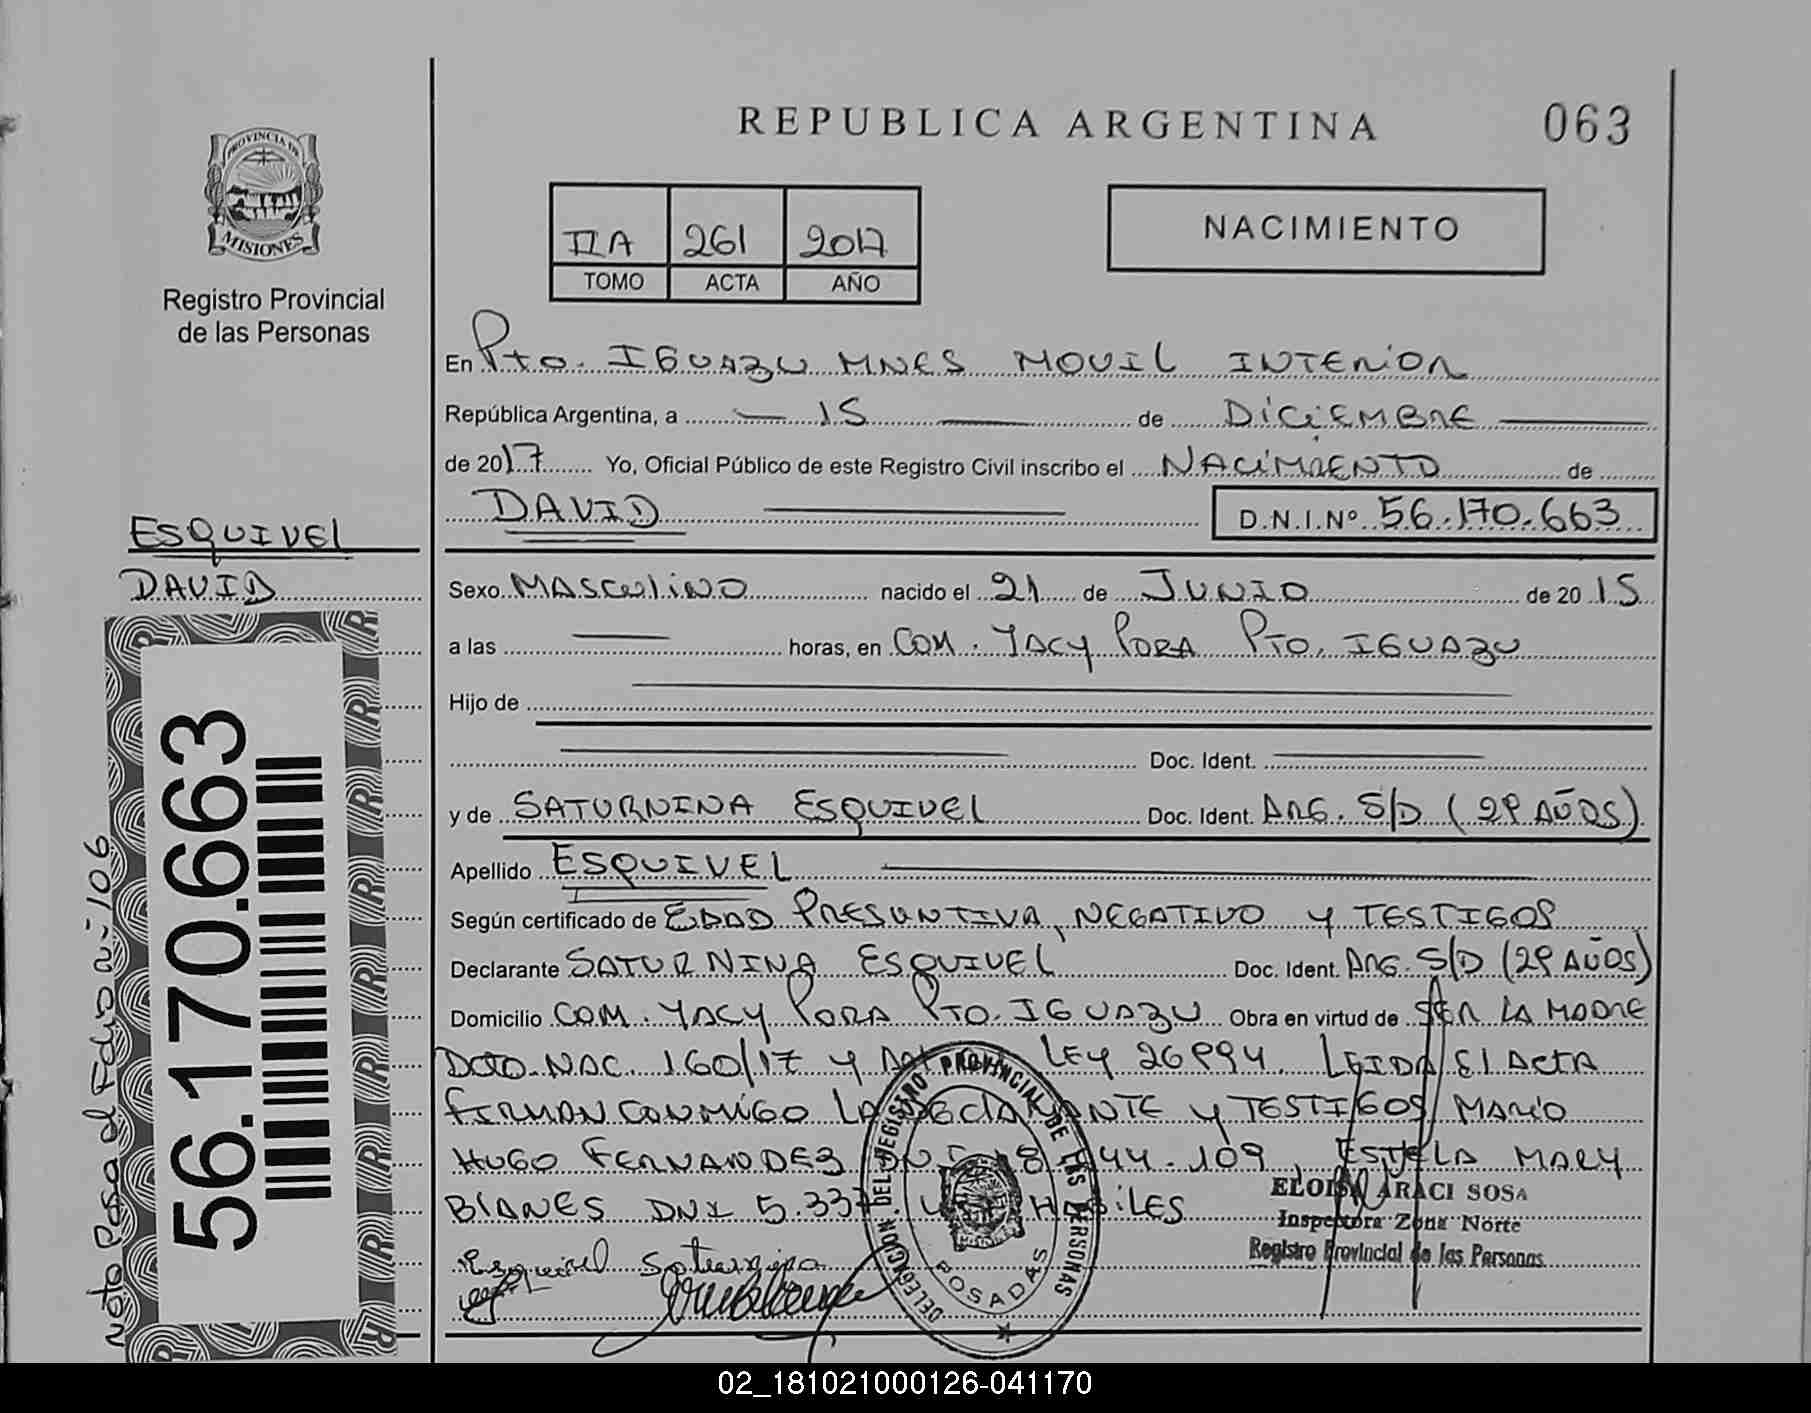 REPUBLICA ARGENTINA
063
PROVINCIA DE
MISIONES
Registro Provincial
de las Personas
IIA 261 2017
TOMO ACTA AÑO
NACIMIENTO
En Pto. IGUAZU MNES MOVIL INTERIOR
República Argentina, a 15 de DICIEMBRE
de 2017 Yo, Oficial Público de este Registro Civil inscribo el NACIMIENTO de
DAVID D.N.I.Nº 56.170.663
ESQUIVEL
DAVID
Sexo MASCULINO nacido el 21 de JUNIO de 20 15
a las horas, en COM. YACY PORA PTO. IGUAZU
Hijo de
Doc. Ident.
y de SATURNINA ESQUIVEL Doc. Ident. ARG. S/D (29 AÑOS)
Apellido ESQUIVEL
Según certificado de EDAD PRESUNTIVA, NEGATIVO y TESTIGOS
Declarante SATURNINA ESQUIVEL Doc. Ident. ARG. S/D (29 AÑOS)
Domicilio COM. YACY PORA PTO. IGUAZU Obra en virtud de SER LA MADRE
DCTO. NAC. 160/17 y LEY 26994. LEIDA El ACTA
FIRMAN CONMIGO LA DECLARANTE y TESTIGOS MARIO
HUGO FERNANDEZ DNI 44.109, ESTELA MARY
BLANES DNI 5.337. HABILES
Esquivel Saturnina
ELOISA ARACI SOSA
Inspectora Zona Norte
Registro Provincial de las Personas
DELEGACION DEL REGISTRO PROVINCIAL DE LAS PERSONAS
POSADAS
56.170.663
Nota Pasa al Folio Nº 106
02_181021000126-041170